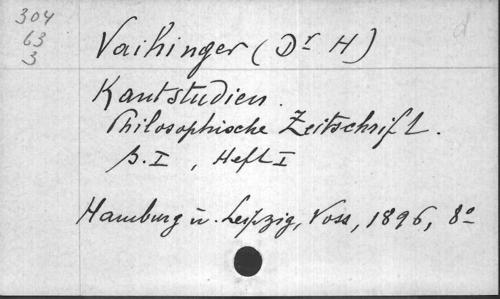 304
63
3
Vaihinger (Dr H)
d
Kantstudien.
Philosophische Zeitschrift.
B. I, Heft I
Hamburg u. Leipzig, Voss, 1896, 8o